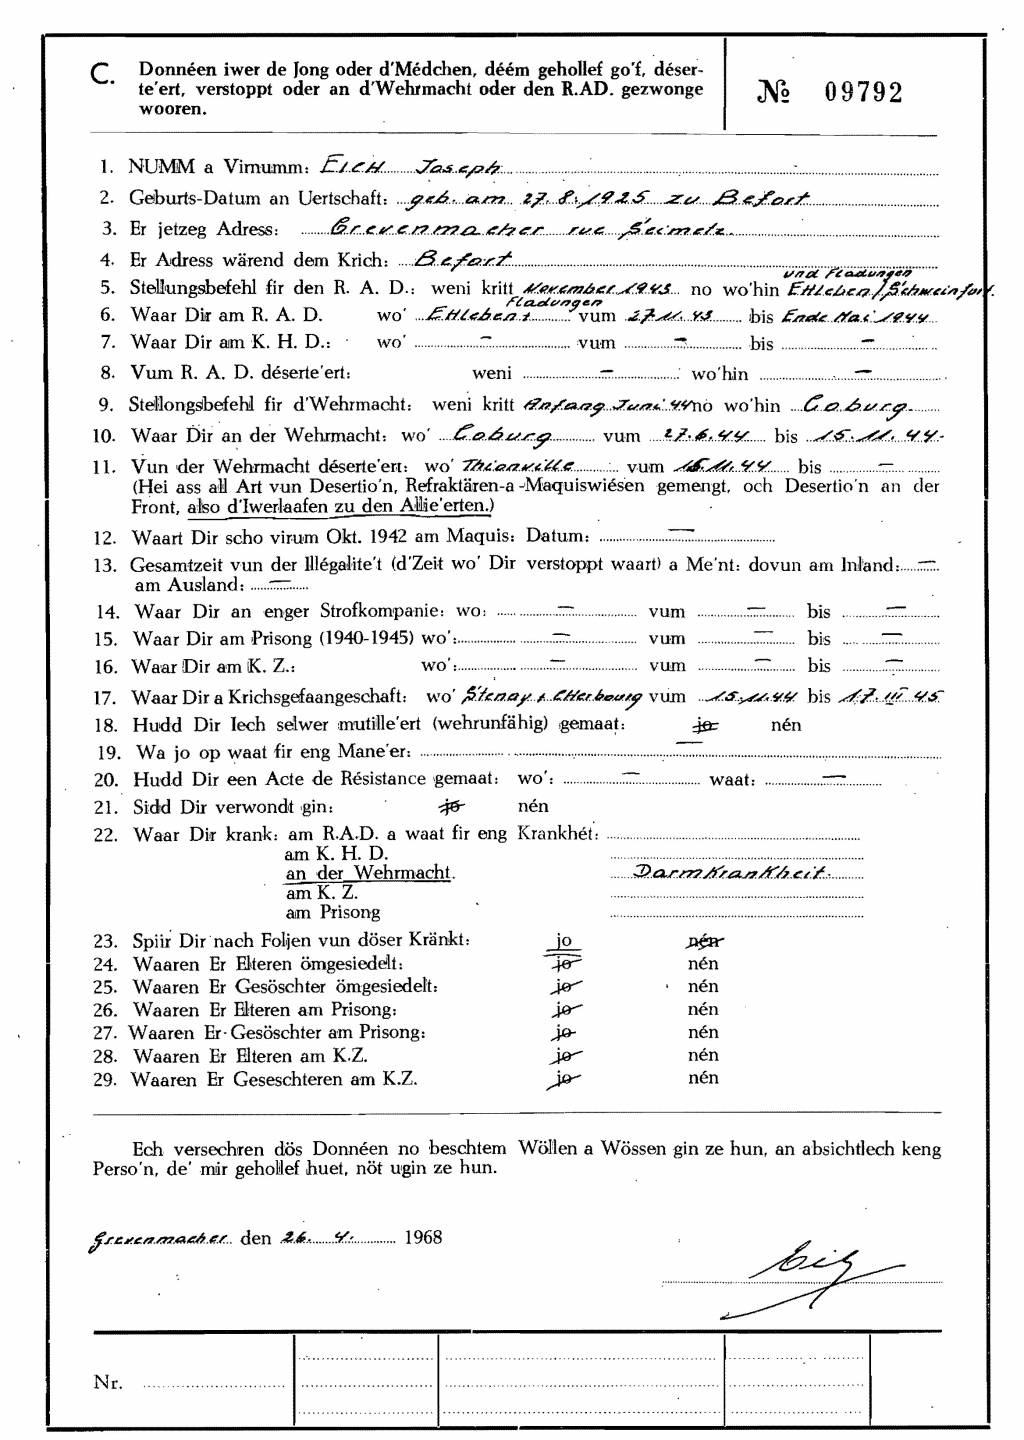 C. Donnéen iwer de Jong oder d'Médchen, déém gehollef go'f, déser-
te'ert, verstoppt oder an d'Wehrmacht oder den R.AD. gezwonge
wooren.
№ 09792
1. NUMM a Virnumm: EICH Joseph
2. Geburts-Datum an Uertschaft: geb. am 27.8.1925 zu Befort
3. Er jetzeg Adress: Grevenmacher rue Seimetz.
4. Er Adress wärend dem Krich: Befort
und Fladungen
5. Stellungsbefehl fir den R. A. D.: weni kritt November 1943 no wo'hin Ettleben/Schweinfort.
Fladungen
6. Waar Dir am R. A. D. wo' Ettleben + vum 27.11.43 bis Ende Mai 1944
7. Waar Dir am K. H. D.: wo' — vum — bis —
8. Vum R. A. D. déserte'ert: weni — wo'hin —
9. Stellongsbefehl fir d'Wehrmacht: weni kritt Anfang Juni 44 no wo'hin Coburg.
10. Waar Dir an der Wehrmacht: wo' Coburg vum 27.6.44 bis 15.11.44.
11. Vun der Wehrmacht déserte'ert: wo' Thionville vum 15.11.44 bis —
(Hei ass all Art vun Desertio'n, Refraktären-a-Maquiswiésen gemengt, och Desertio'n an der
Front, also d'Iwerlaafen zu den Allie'erten.)
12. Waart Dir scho virum Okt. 1942 am Maquis: Datum: —
13. Gesamtzeit vun der Illégalite't (d'Zeit wo' Dir verstoppt waart) a Me'nt: dovun am Inland: —
am Ausland: —
14. Waar Dir an enger Strofkompanie: wo: — vum — bis —
15. Waar Dir am Prisong (1940-1945) wo': — vum — bis —
16. Waar Dir am K. Z.: wo': — vum — bis —
17. Waar Dir a Krichsgefaangeschaft: wo' Stenay + Cherbourg vum 15.11.44 bis 17.III.45
18. Hudd Dir Iech selwer mutille'ert (wehrunfähig) gemaat: jo nén
19. Wa jo op waat fir eng Mane'er: —
20. Hudd Dir een Acte de Résistance gemaat: wo': — waat: —
21. Sidd Dir verwondt gin: jo nén
22. Waar Dir krank: am R.A.D. a waat fir eng Krankhét:
am K. H. D.
an der Wehrmacht. Darmkrankheit.
am K. Z.
am Prisong
23. Spiir Dir nach Foljen vun döser Kränkt: jo nén
24. Waaren Er Elteren ömgesiedelt: jo nén
25. Waaren Er Gesöschter ömgesiedelt: jo nén
26. Waaren Er Elteren am Prisong: jo nén
27. Waaren Er Gesöschter am Prisong: jo nén
28. Waaren Er Elteren am K.Z. jo nén
29. Waaren Er Geseschteren am K.Z. jo nén
Ech versechren dös Donnéen no beschtem Wöllen a Wössen gin ze hun, an absichtlech keng
Perso'n, de' mir gehollef huet, nöt ugin ze hun.
Grevenmacher den 26. 4. 1968
Nr.